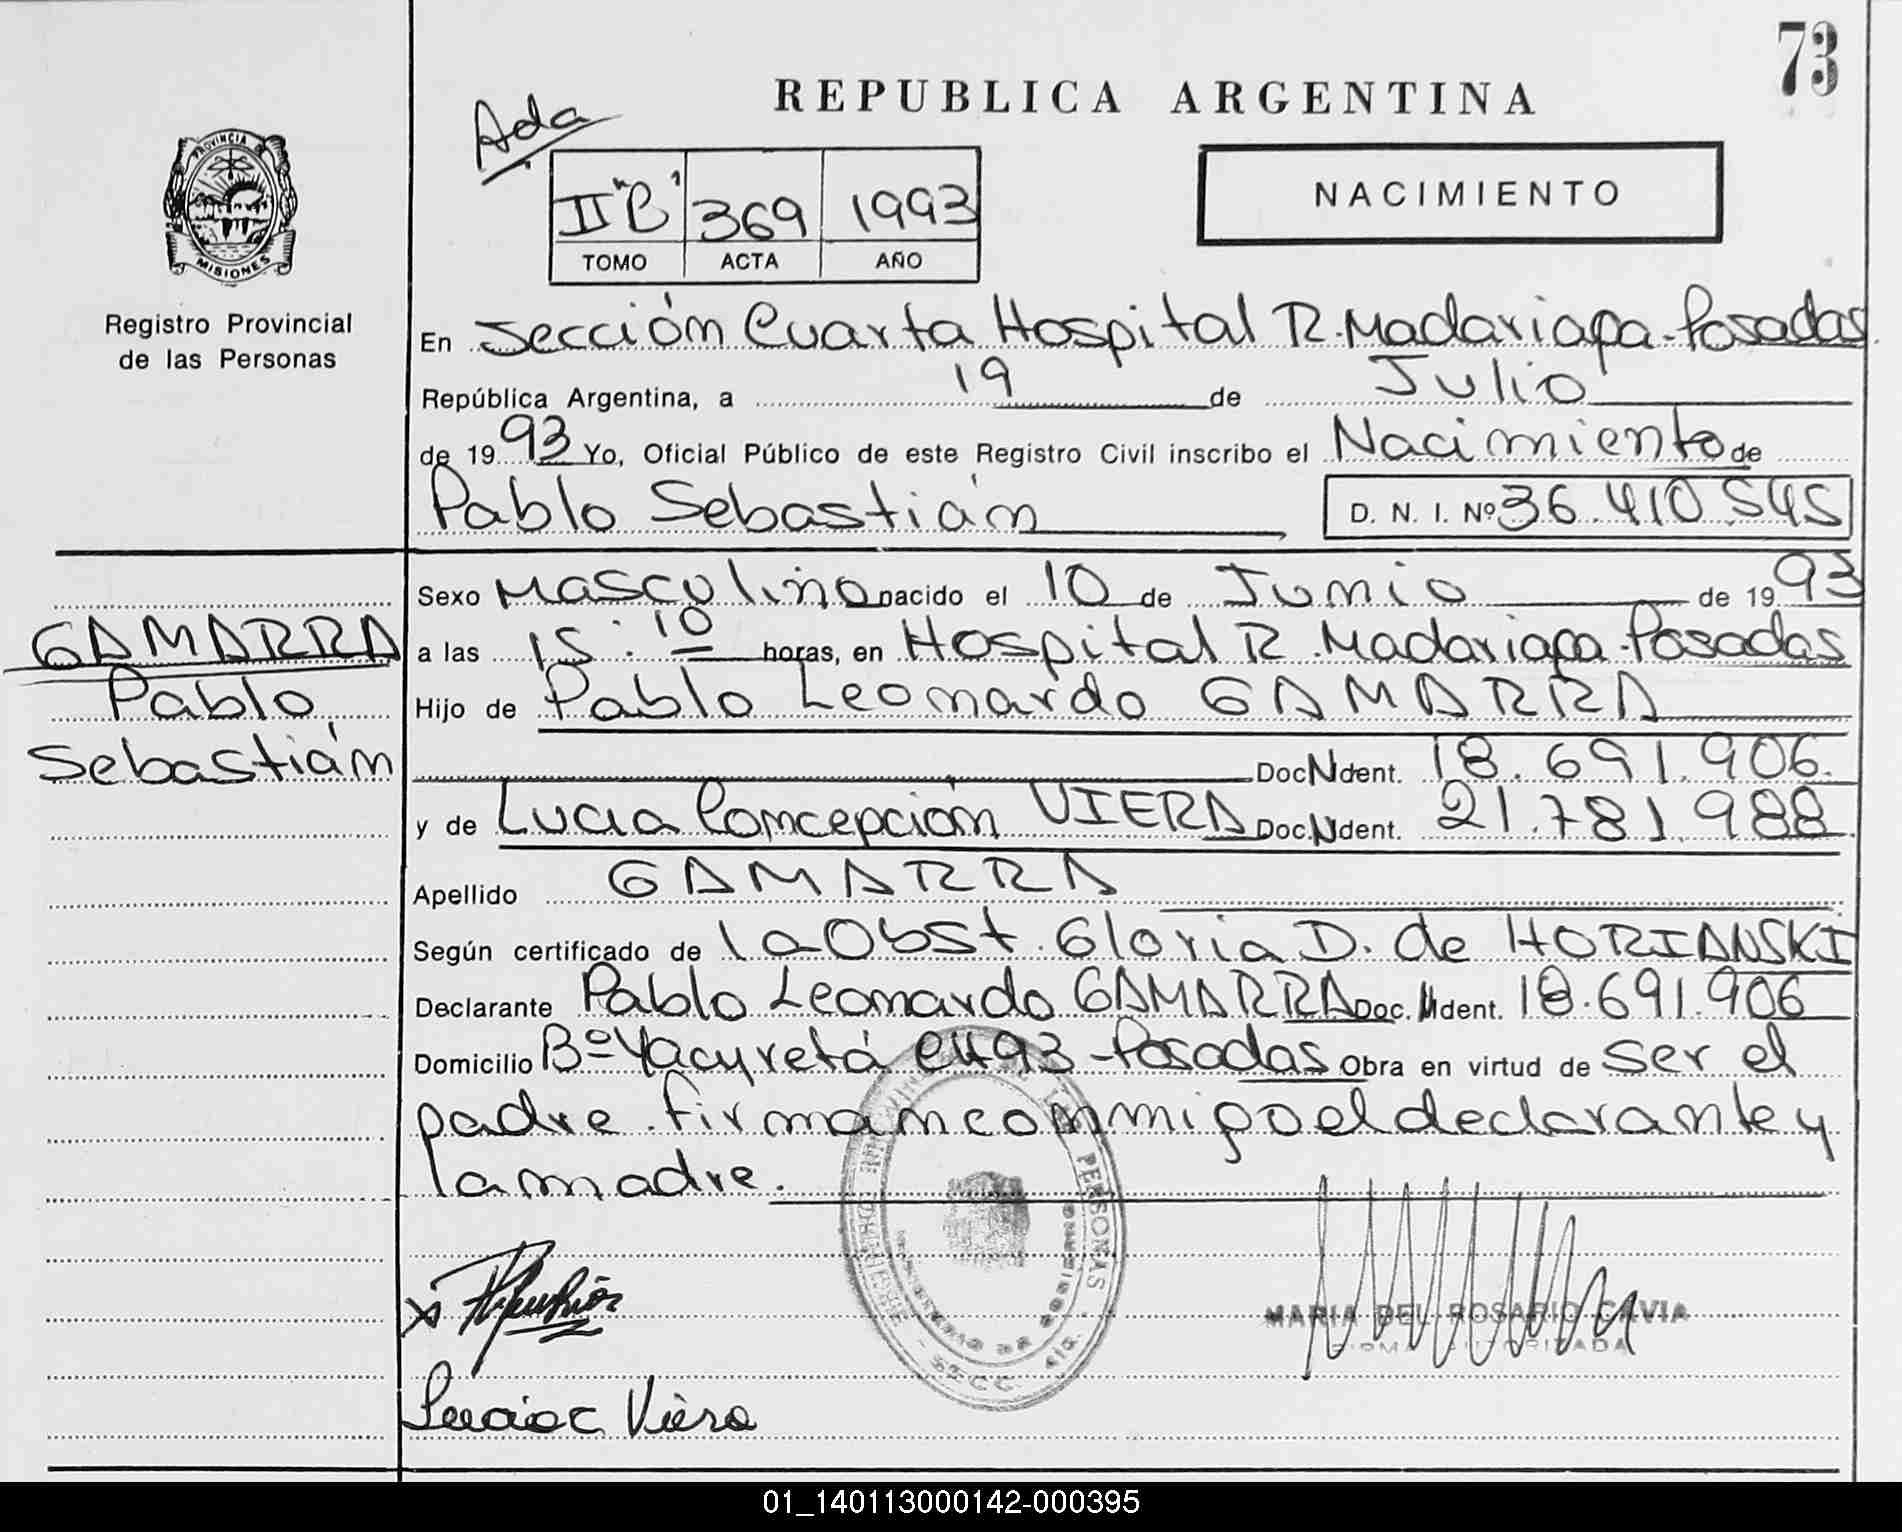 73
REPUBLICA ARGENTINA
Ada
PROVINCIA DE
MISIONES
II "B" 369 1993
TOMO ACTA AÑO
NACIMIENTO
Registro Provincial
de las Personas
En Sección Cuarta Hospital R. Madariaga - Posadas
República Argentina, a 19 de Julio
de 1993 Yo, Oficial Público de este Registro Civil inscribo el Nacimiento de
Pablo Sebastián D. N. I. Nº 36.410.545
Sexo Masculino nacido el 10 de Junio de 1993
GAMARRA
Pablo
Sebastián
a las 15:10 horas, en Hospital R. Madariaga - Posadas
Hijo de Pablo Leonardo GAMARRA
Doc N Ident. 18.691.906.
y de Lucia Concepción VIERA Doc. N Ident. 21.781.988
Apellido GAMARRA
Según certificado de la Obst. Gloria D. de HORIANSKI
Declarante Pablo Leonardo GAMARRA Doc. N Ident. 18.691.906
Domicilio Bº Yacyretá C493 - Posadas Obra en virtud de ser el
padre. firman conmigo el declarante y
la madre.
MARIA DEL ROSARIO CAVIA
FIRMA AUTORIZADA
Viera
01_140113000142-000395